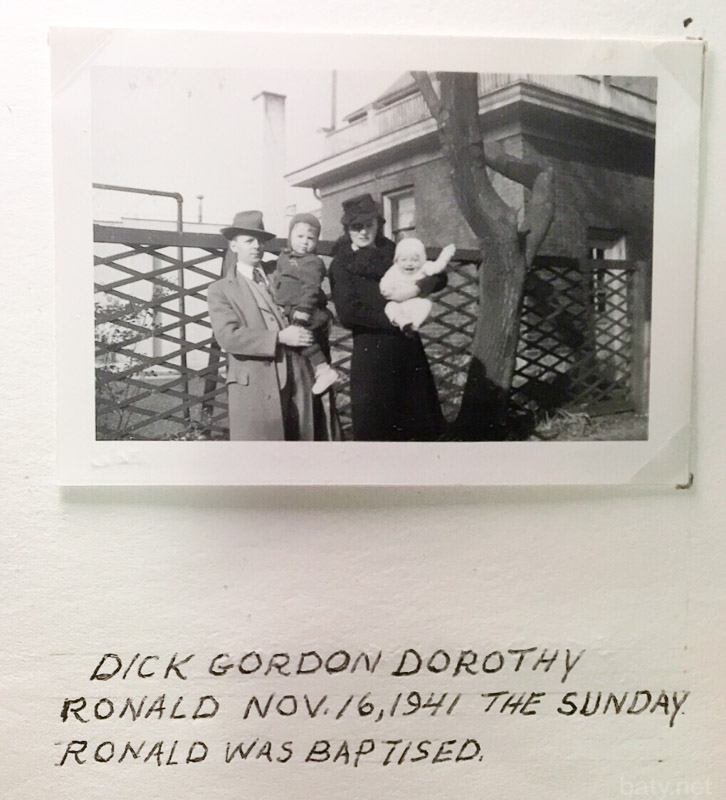 DICK GORDON DOROTHY
RONALD NOV. 16, 1941 THE SUNDAY
RONALD WAS BAPTISED.
baty.net